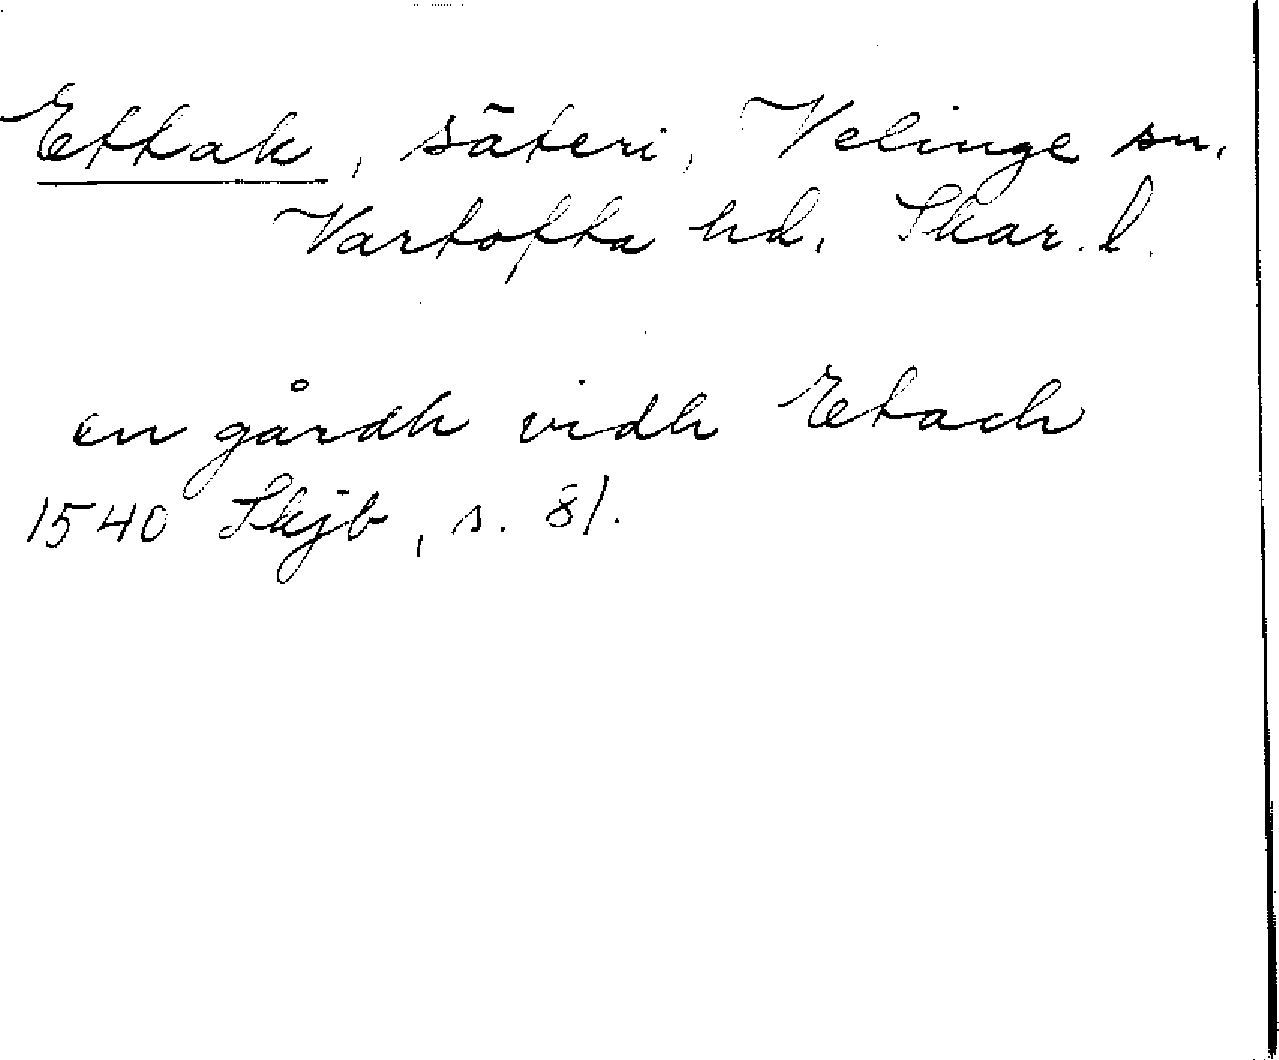 Ettak, säteri, Velinge sn.
Vartofta hd. Skar. l.
en gårdh vidh Etach
1540 Skjb, s. 81.